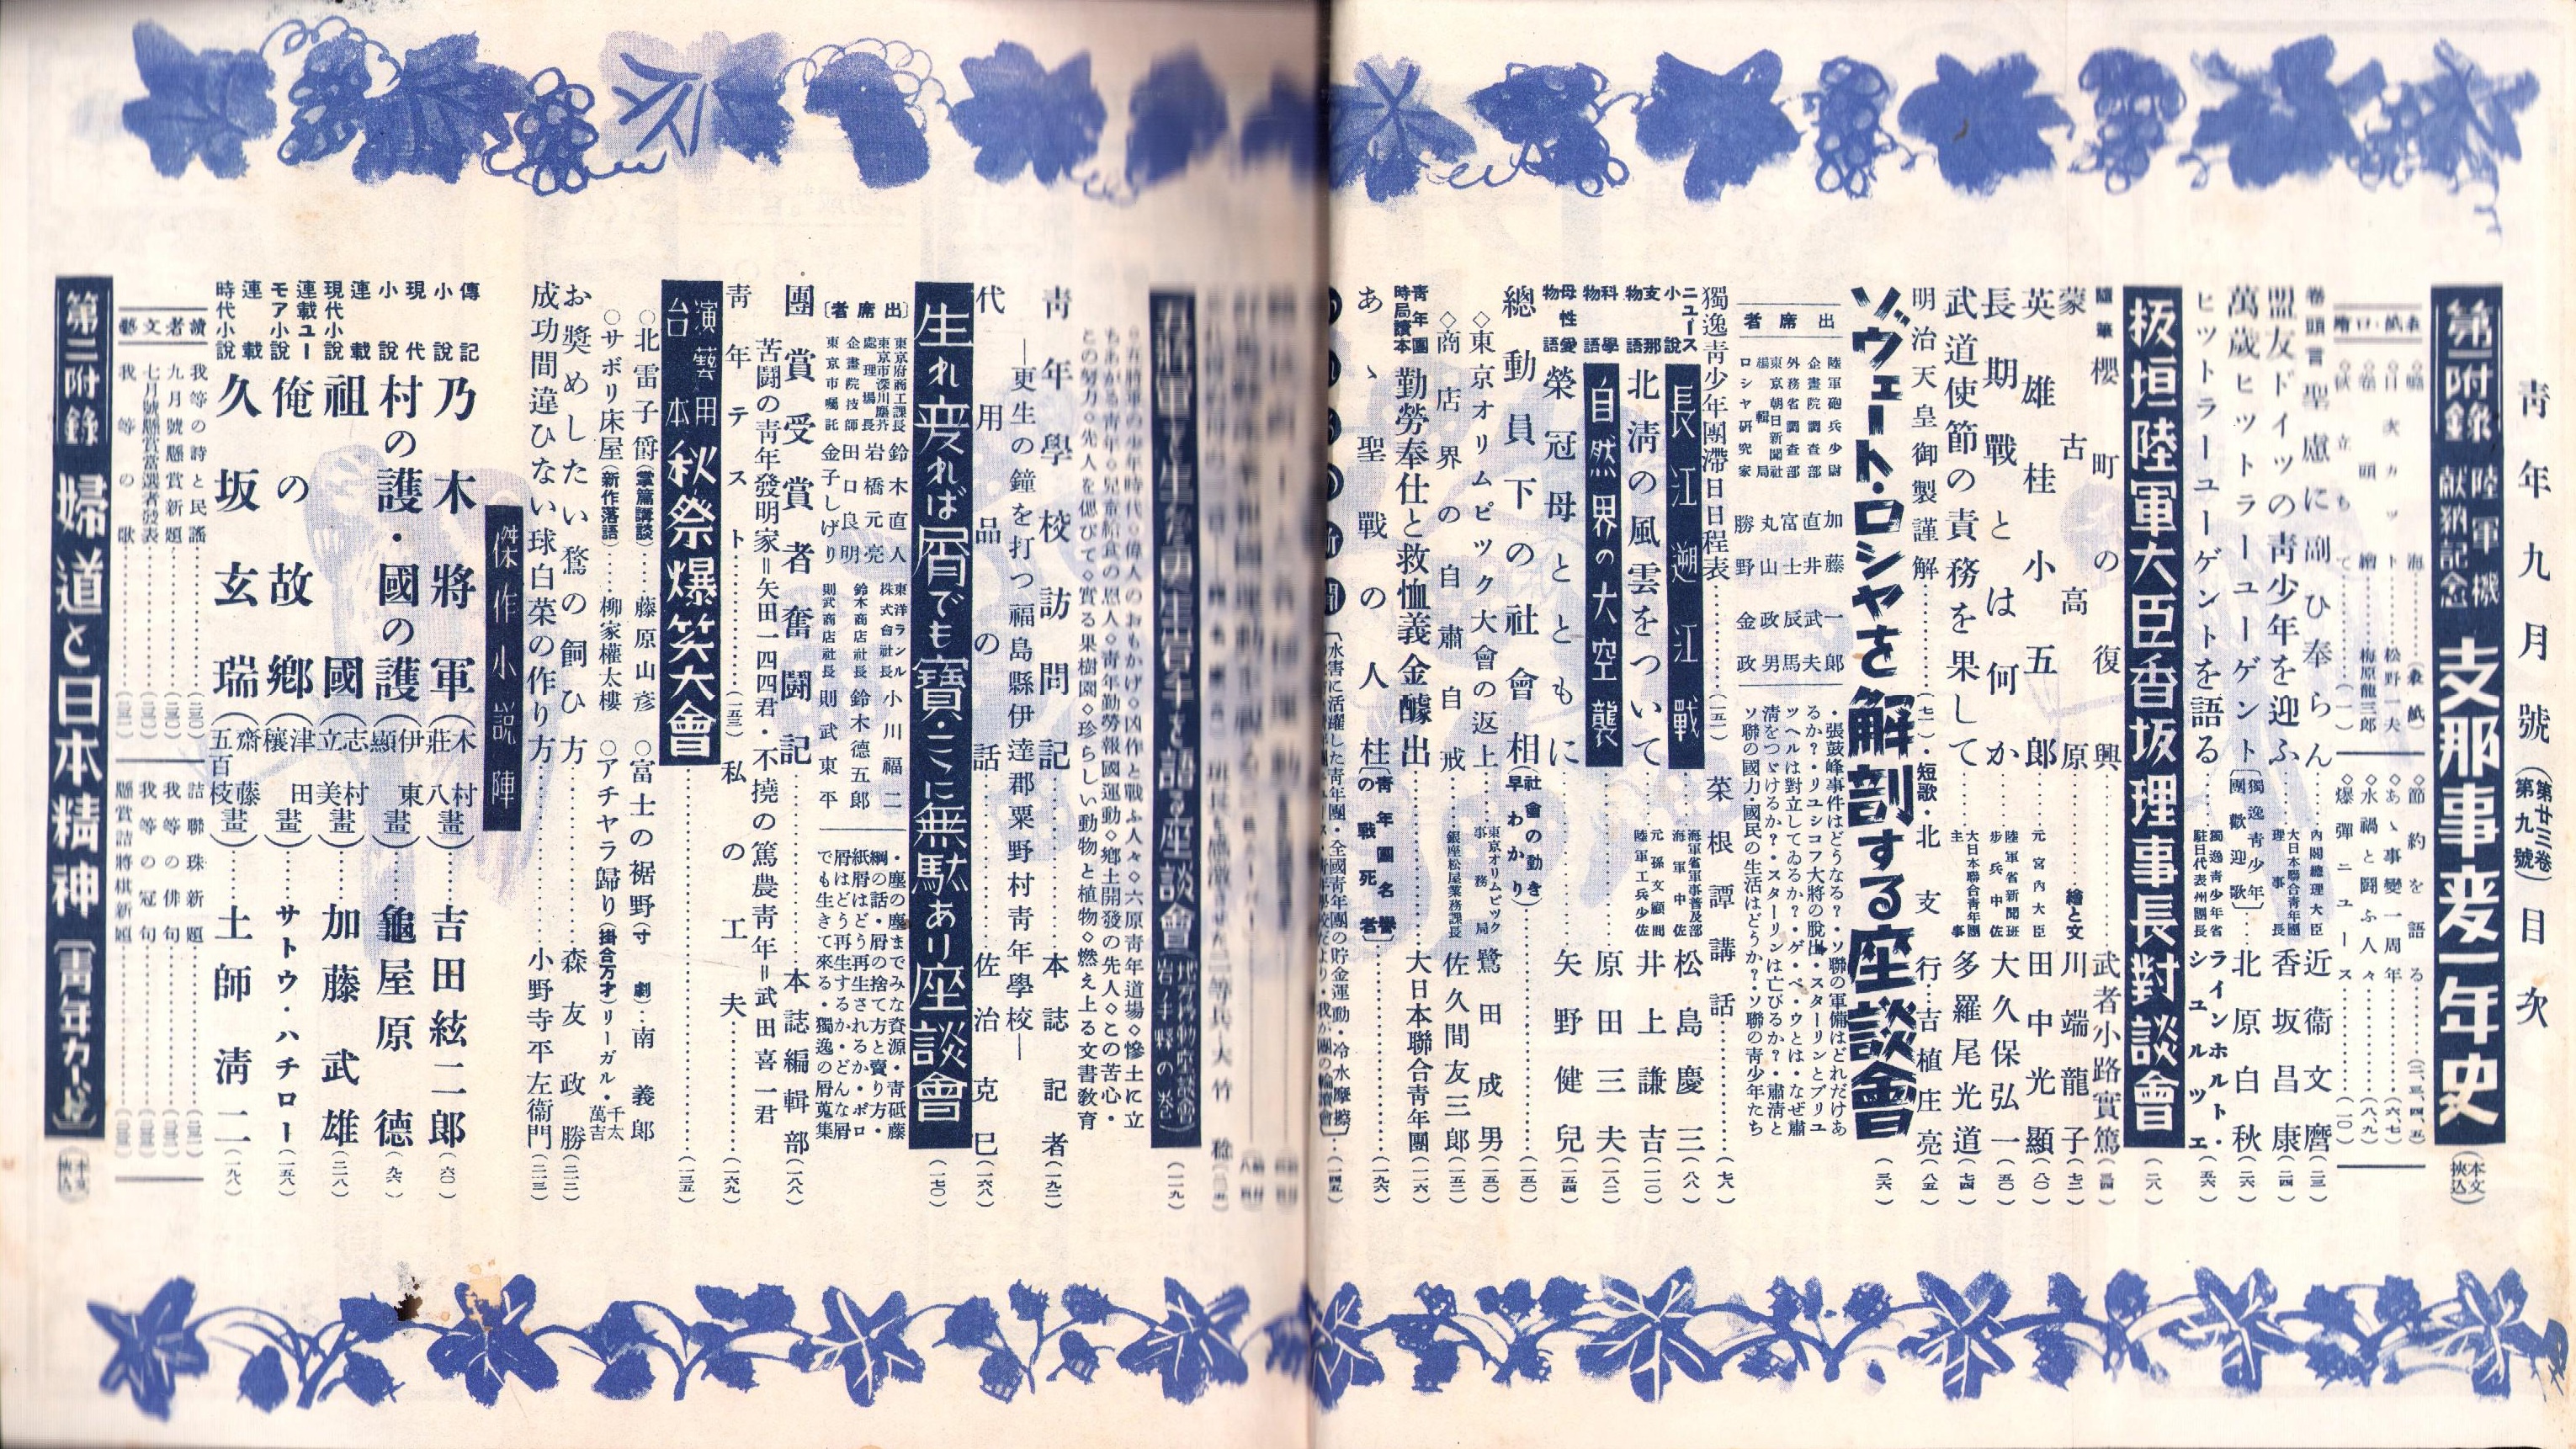 靑年九月號目次
(第廿三卷第九號)
第一附錄 陸軍機獻納記念 支那事變一年史(本文挾込)
◇目次カット…松野一夫
◇卷頭繪…梅原龍三郎
◇秋立ちて…(一)
◇節約を語る…(二、三、四、五)
◇あゝ事變一周年…(六七)
◇水禍と鬪ふ人々…(八、九)
◇爆彈ニュース…(一〇)
卷頭言 聖慮に副ひ奉らん…內閣總理大臣 近衞文麿(二三)
盟友ドイツの靑少年を迎ふ…大日本聯合靑年團理事長 香坂昌康(二四)
萬歲ヒットラーユーゲント(獨逸靑少年團歡迎歌)…北原白秋(二六)
ヒットラーユーゲントを語る…獨逸靑少年省駐日代表州團長 ラインホルト・シユルツエ(五六)
板垣陸軍大臣香坂理事長對談會(二八)
隨筆 櫻町の復興…武者小路實篤(三四)
蒙古高原…繪と文 川端龍子(七二)
英雄桂小五郎…元宮內大臣 田中光顯(八〇)
長期戰とは何か…陸軍省新聞班步兵中佐 大久保弘一(五〇)
武道使節の責務を果して…大日本聯合靑年團主事 多羅尾光道(七四)
明治天皇御製謹解…(七一)・短歌・北支行…吉植庄亮(八五)
ソヴェート・ロシヤを解剖する座談會(三六)
出席者
陸軍砲兵少尉 加藤一郎
企畫院調査部 直井武夫
外務省調査部 富士辰馬
東京朝日新聞社編輯局 丸山政男
ロシヤ硏究家 勝野金政
・張鼓峰事件はどうなる?・ソ聯の軍備はどれだけあ
るか?・リユシコフ大將の脫出・スターリンとブリユ
ツヘルは對立してゐるか?・ゲ・ペ・ウとは・なぜ肅
淸をつゞけるか?・スターリンは亡びるか?・肅淸と
ソ聯の國力・國民の生活はどうか?・ソ聯の靑少年たち
獨逸靑少年團滯日日程表…(五一) 菜根譚講話…(七八)
ニュース小說 長江遡江戰…海軍省軍事普及部海軍中佐 松島慶三(八八)
支那物語 北淸の風雲をついて…元孫文顧問陸軍工兵少佐 井上謙吉(二一〇)
科學物語 自然界の大空襲…原田三夫(一八二)
母性愛物語 榮冠母とともに…矢野健兒(一五四)
總動員下の社會相(社會の動き早わかり)…(一五〇)
◇東京オリムピック大會の返上…東京オリムピック事務局 鷺田成男(一五〇)
◇商店界の自肅自戒…銀座松屋業務課長 佐久間友三郎(一五二)
靑年團時局讀本 勤勞奉仕と救恤義金醵出…大日本聯合靑年團(一一六)
あゝ聖戰の人柱(靑年團名譽の戰死者)…(一九六)
大竹稔
座談會(地方移動座談會)岩手縣の卷(一一九)
この努力◇先人を偲びて◇實る果樹園◇珍らしい動物と植物◇燃え上る文書敎育
靑年學校訪問記…本誌記者(一九二)
―更生の鐘を打つ福島縣伊達郡粟野村靑年學校―
代用品の話…佐治克巳(一六八)
生れ變れば屑でも寶・こゝに無駄あり座談會(一七〇)
(出席者)
東京府商工課長 鈴木直人
東京市深川塵芥處理場長 岩橋元亮
企畫院技師 田口良明
東京市囑託 金子しげり
東洋ランル株式會社長 小川福二
鈴木商店社長 鈴木德五郎
則武商店社長 則武東平
・塵の塵までみな資源・靑砥藤
綱の話・屑の捨て方と賣り方・
紙屑はどう再生されるか・ボロ
屑はどう再生するか・どんな屑
でも生きて來る・獨逸の屑蒐集
團賞受賞者奮鬪記…本誌編輯部(一八八)
苦鬪の靑年發明家=矢田一四四君・不撓の篤農靑年=武田喜一君
靑年テスト…(一五三) 私の工夫…(一六九)
演藝用台本 秋祭爆笑大會…(一三五)
○北雷子爵(掌篇講談)…藤原山彥 ○富士の裾野(寸劇)…南義郎
○サボリ床屋(新作落語)…柳家權太樓 ○アチャラ歸り(掛合万才)リーガル・千太 萬吉
お奬めしたい鶩の飼ひ方…森友政勝(二二二)
成功間違ひない球白菜の作り方…小野寺平左衞門(二二三)
傑作小說陣
傳記小說 乃木將軍(木村莊八畫)…吉田絃二郎(六〇)
現代小說 村の護・國の護(伊東顯畫)…龜屋原德(九六)
連載現代小說 祖國(志村立美畫)…加藤武雄(二一八)
連載ユーモア小說 俺の故鄕(津田穰畫)…サトウ・ハチロー(一五八)
連載時代小說 久坂玄瑞(齋藤五百枝畫)…土師淸二(一九八)
讀者文藝
我等の詩と民謠
九月號懸賞新題
七月號懸賞當選者發表
我等の歌
詰聯珠新題
我等の俳句
我等の冠句
懸賞詰將棋新題
第二附錄 婦道と日本精神(靑年カード)(本文挾込)